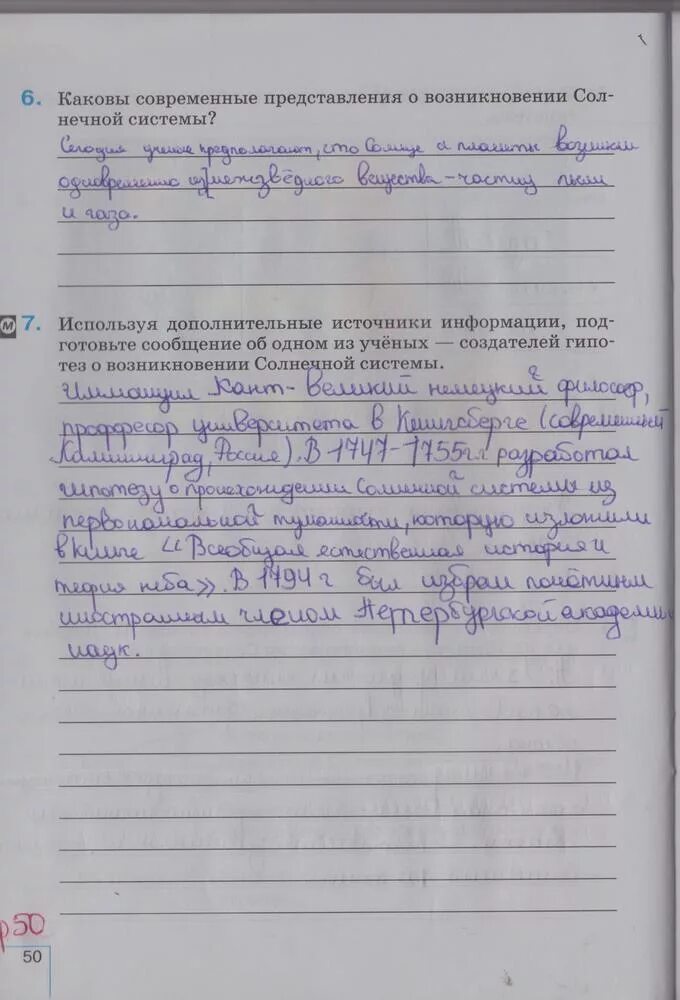 6. Каковы современные представления о возникновении Сол-
нечной системы?
Сегодня учёные предполагают, что Солнце и планеты возникли
одновременно из межзвёдного вещества – частиц пыли
и газа.
М 7. Используя дополнительные источники информации, под-
готовьте сообщение об одном из учёных — создателей гипо-
тез о возникновении Солнечной системы.
Иммануил Кант - великий немецкий философ,
проффесор университета в Кенигсберге (современный
Калининград, Россия). В 1747-1755гг разработал
гипотезу о происхождении Солнечной системы из
первоначальной туманности, которую изложили
в книге «Всеобщая естественная история и
теория неба». В 1794 г был избран почётным
иностранным членом Петербургской академии
наук.
р50
50